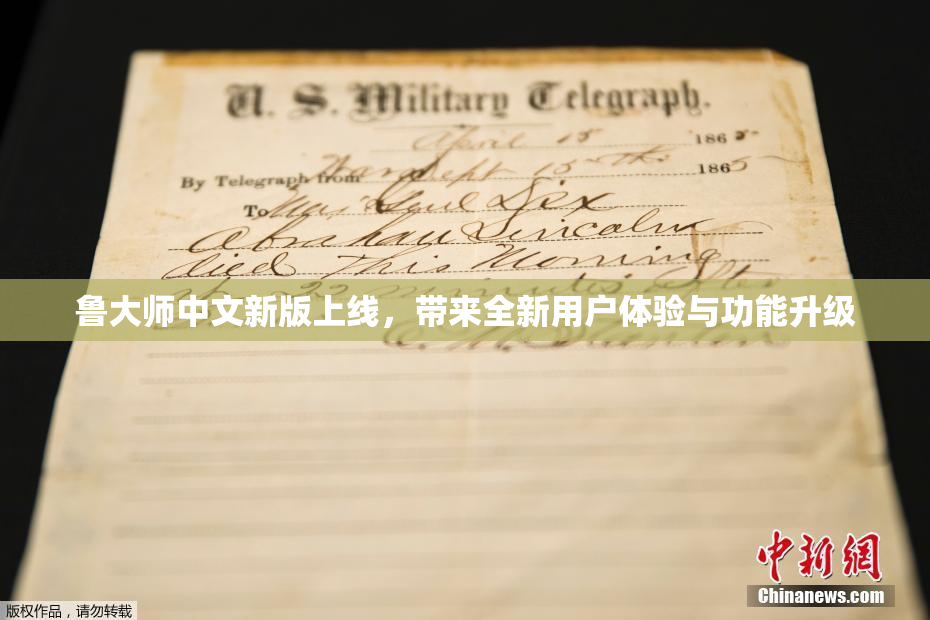 U. S. Military Telegraph.
April 15 1865
By Telegraph from War Dept 15th 1865
To Maj Genl Dix
Abraham Lincoln
died this Morning
22 minutes after
鲁大师中文新版上线，带来全新用户体验与功能升级
E. M. Stanton
中新網
Chinanews.com
版权作品，请勿转载